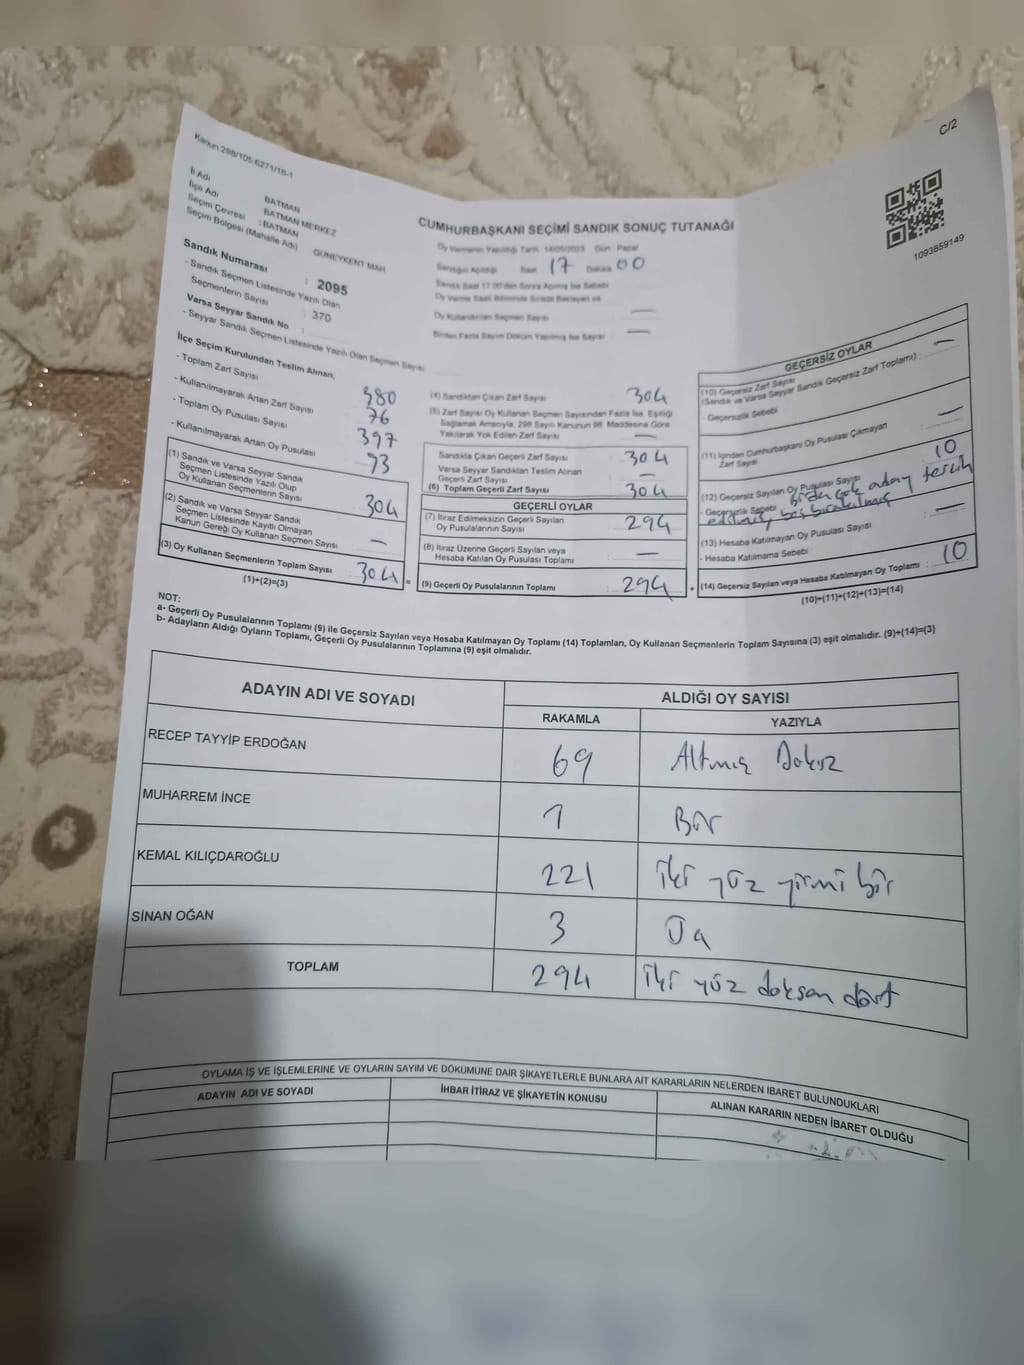 Kanun 298/105 6271/18-1
C/2
İl Adı BATMAN
İlçe Adı BATMAN MERKEZ
Seçim Çevresi : BATMAN
Seçim Bölgesi (Mahalle Adı) GÜNEYKENT MAH
1093859149
CUMHURBAŞKANI SEÇİMİ SANDIK SONUÇ TUTANAĞI
Oy Vermenin Yapıldığı Tarih 14/05/2023 Gün Pazar
Sandığın Açıldığı Saat 17 Dakika 00
Sandık Saat 17:00'den Sonra Açılmış İse Sebebi
Oy Verme Saati Bitiminde Sırada Bekleyen ve
Oy Kullandırılan Seçmen Sayısı —
Birden Fazla Sayım Döküm Yapılmış İse Sayısı —
Sandık Numarası : 2095
- Sandık Seçmen Listesinde Yazılı Olan
Seçmenlerin Sayısı : 370
Varsa Seyyar Sandık No :
- Seyyar Sandık Seçmen Listesinde Yazılı Olan Seçmen Sayısı
İlçe Seçim Kurulundan Teslim Alınan;
- Toplam Zarf Sayısı 380
- Kullanılmayarak Artan Zarf Sayısı 76
- Toplam Oy Pusulası Sayısı 397
- Kullanılmayarak Artan Oy Pusulası 93
(1) Sandık ve Varsa Seyyar Sandık
Seçmen Listesinde Yazılı Olup
Oy Kullanan Seçmenlerin Sayısı 304
(2) Sandık ve Varsa Seyyar Sandık
Seçmen Listesinde Kayıtlı Olmayan
Kanun Gereği Oy Kullanan Seçmen Sayısı —
(3) Oy Kullanan Seçmenlerin Toplam Sayısı : 304 =
(1)+(2)=(3)
(4) Sandıktan Çıkan Zarf Sayısı 304
(5) Zarf Sayısı Oy Kullanan Seçmen Sayısından Fazla İse, Eşitliği
Sağlamak Amacıyla, 298 Sayılı Kanunun 98. Maddesine Göre
Yakılarak Yok Edilen Zarf Sayısı —
Sandıkta Çıkan Geçerli Zarf Sayısı 304
Varsa Seyyar Sandıktan Teslim Alınan
Geçerli Zarf Sayısı —
(6) Toplam Geçerli Zarf Sayısı 304
GEÇERLİ OYLAR
(7) İtiraz Edilmeksizin Geçerli Sayılan
Oy Pusulalarının Sayısı 294
(8) İtiraz Üzerine Geçerli Sayılan veya
Hesaba Katılan Oy Pusulası Toplamı —
(9) Geçerli Oy Pusulalarının Toplamı : 294 +
GEÇERSİZ OYLAR
(10) Geçersiz Zarf Sayısı
(Sandık ve Varsa Seyyar Sandık Geçersiz Zarf Toplamı) : —
- Geçersizlik Sebebi
(11) İçinden Cumhurbaşkanı Oy Pusulası Çıkmayan
Zarf Sayısı —
(12) Geçersiz Sayılan Oy Pusulası Sayısı 10
- Geçersizlik Sebebi Birden çok aday tercih
edilmiş, boş bırakılmış
(13) Hesaba Katılmayan Oy Pusulası Sayısı —
- Hesaba Katılmama Sebebi
(14) Geçersiz Sayılan veya Hesaba Katılmayan Oy Toplamı : 10
(10)+(11)+(12)+(13)=(14)
NOT:
a- Geçerli Oy Pusulalarının Toplamı (9) ile Geçersiz Sayılan veya Hesaba Katılmayan Oy Toplamı (14) Toplamları, Oy Kullanan Seçmenlerin Toplam Sayısına (3) eşit olmalıdır. (9)+(14)=(3)
b- Adayların Aldığı Oyların Toplamı, Geçerli Oy Pusulalarının Toplamına (9) eşit olmalıdır.
ADAYIN ADI VE SOYADI ALDIĞI OY SAYISI
RAKAMLA YAZIYLA
RECEP TAYYİP ERDOĞAN 69 Altmış Dokuz
MUHARREM İNCE 1 Bir
KEMAL KILIÇDAROĞLU 221 iki yüz yirmi bir
SİNAN OĞAN 3
TOPLAM 294 iki yüz doksan dört
OYLAMA İŞ VE İŞLEMLERİNE VE OYLARIN SAYIM VE DÖKÜMÜNE DAİR ŞİKAYETLERLE BUNLARA AİT KARARLARIN NELERDEN İBARET BULUNDUKLARI
ADAYIN ADI VE SOYADI İHBAR İTİRAZ VE ŞİKAYETİN KONUSU ALINAN KARARIN NEDEN İBARET OLDUĞU